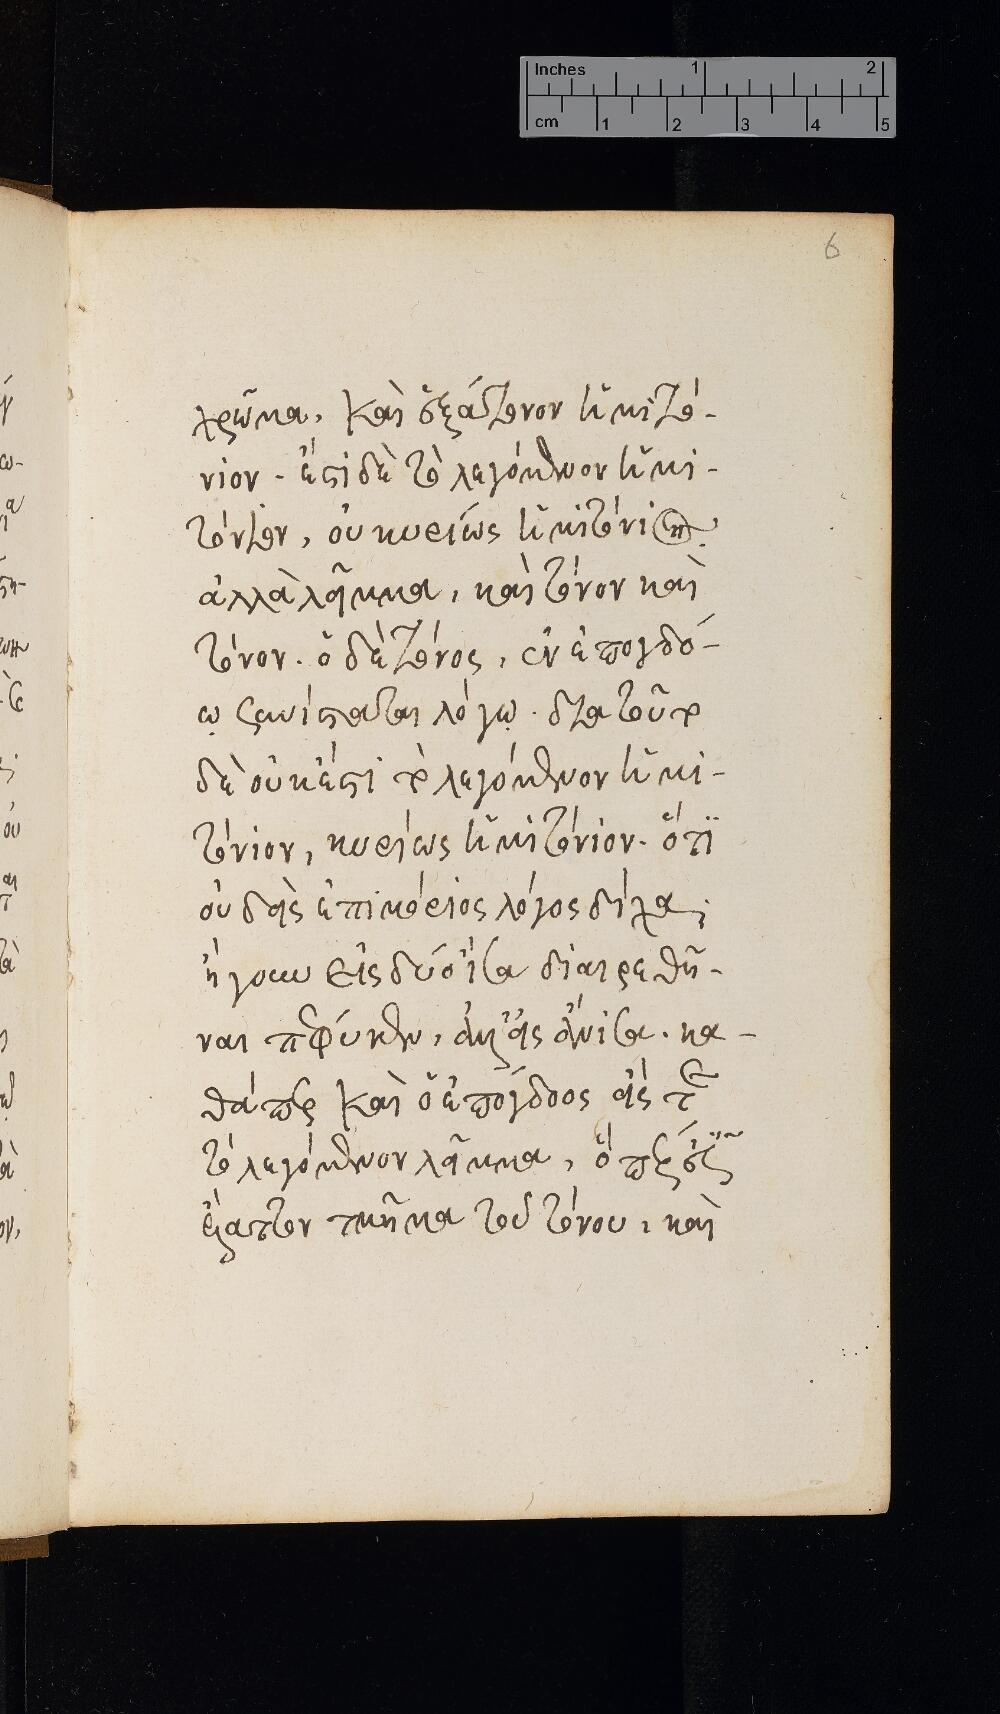 Inches 1 2
cm 1 2 3 4 5
6
χρῶμα, καὶ ὀξύτονον ἡμιτό-
νιον. ἔστι δὲ τὸ λεγόμενον ἡμι-
τόνιον, οὐ κυρίως ἡμιτόνιον
ἀλλὰ λῆμμα, καὶ τόνον καὶ
τόνον. ὁ δὲ τόνος, ἐν ἐπογδό-
ῳ συνίσταται λόγῳ. διατοῦτο
δὲ οὐκ ἔστι τὸ λεγόμενον ἡμι-
τόνιον, κυρίως ἡμιτόνιον. ὅτι
οὐδεὶς ἐπιμόριος λόγος δίχα,
ἤγουν εἰς δύο ἴσα διαιρεθῆ-
ναι πέφυκεν, ἀλλ' εἰς ἄνισα. κα-
θάπερ καὶ ὁ ἐπόγδοος εἰς τε
τὸ λεγόμενον λῆμμα, ὅπερ ἐστὶν
ἔλαττον τμῆμα τοῦ τόνου, καὶ